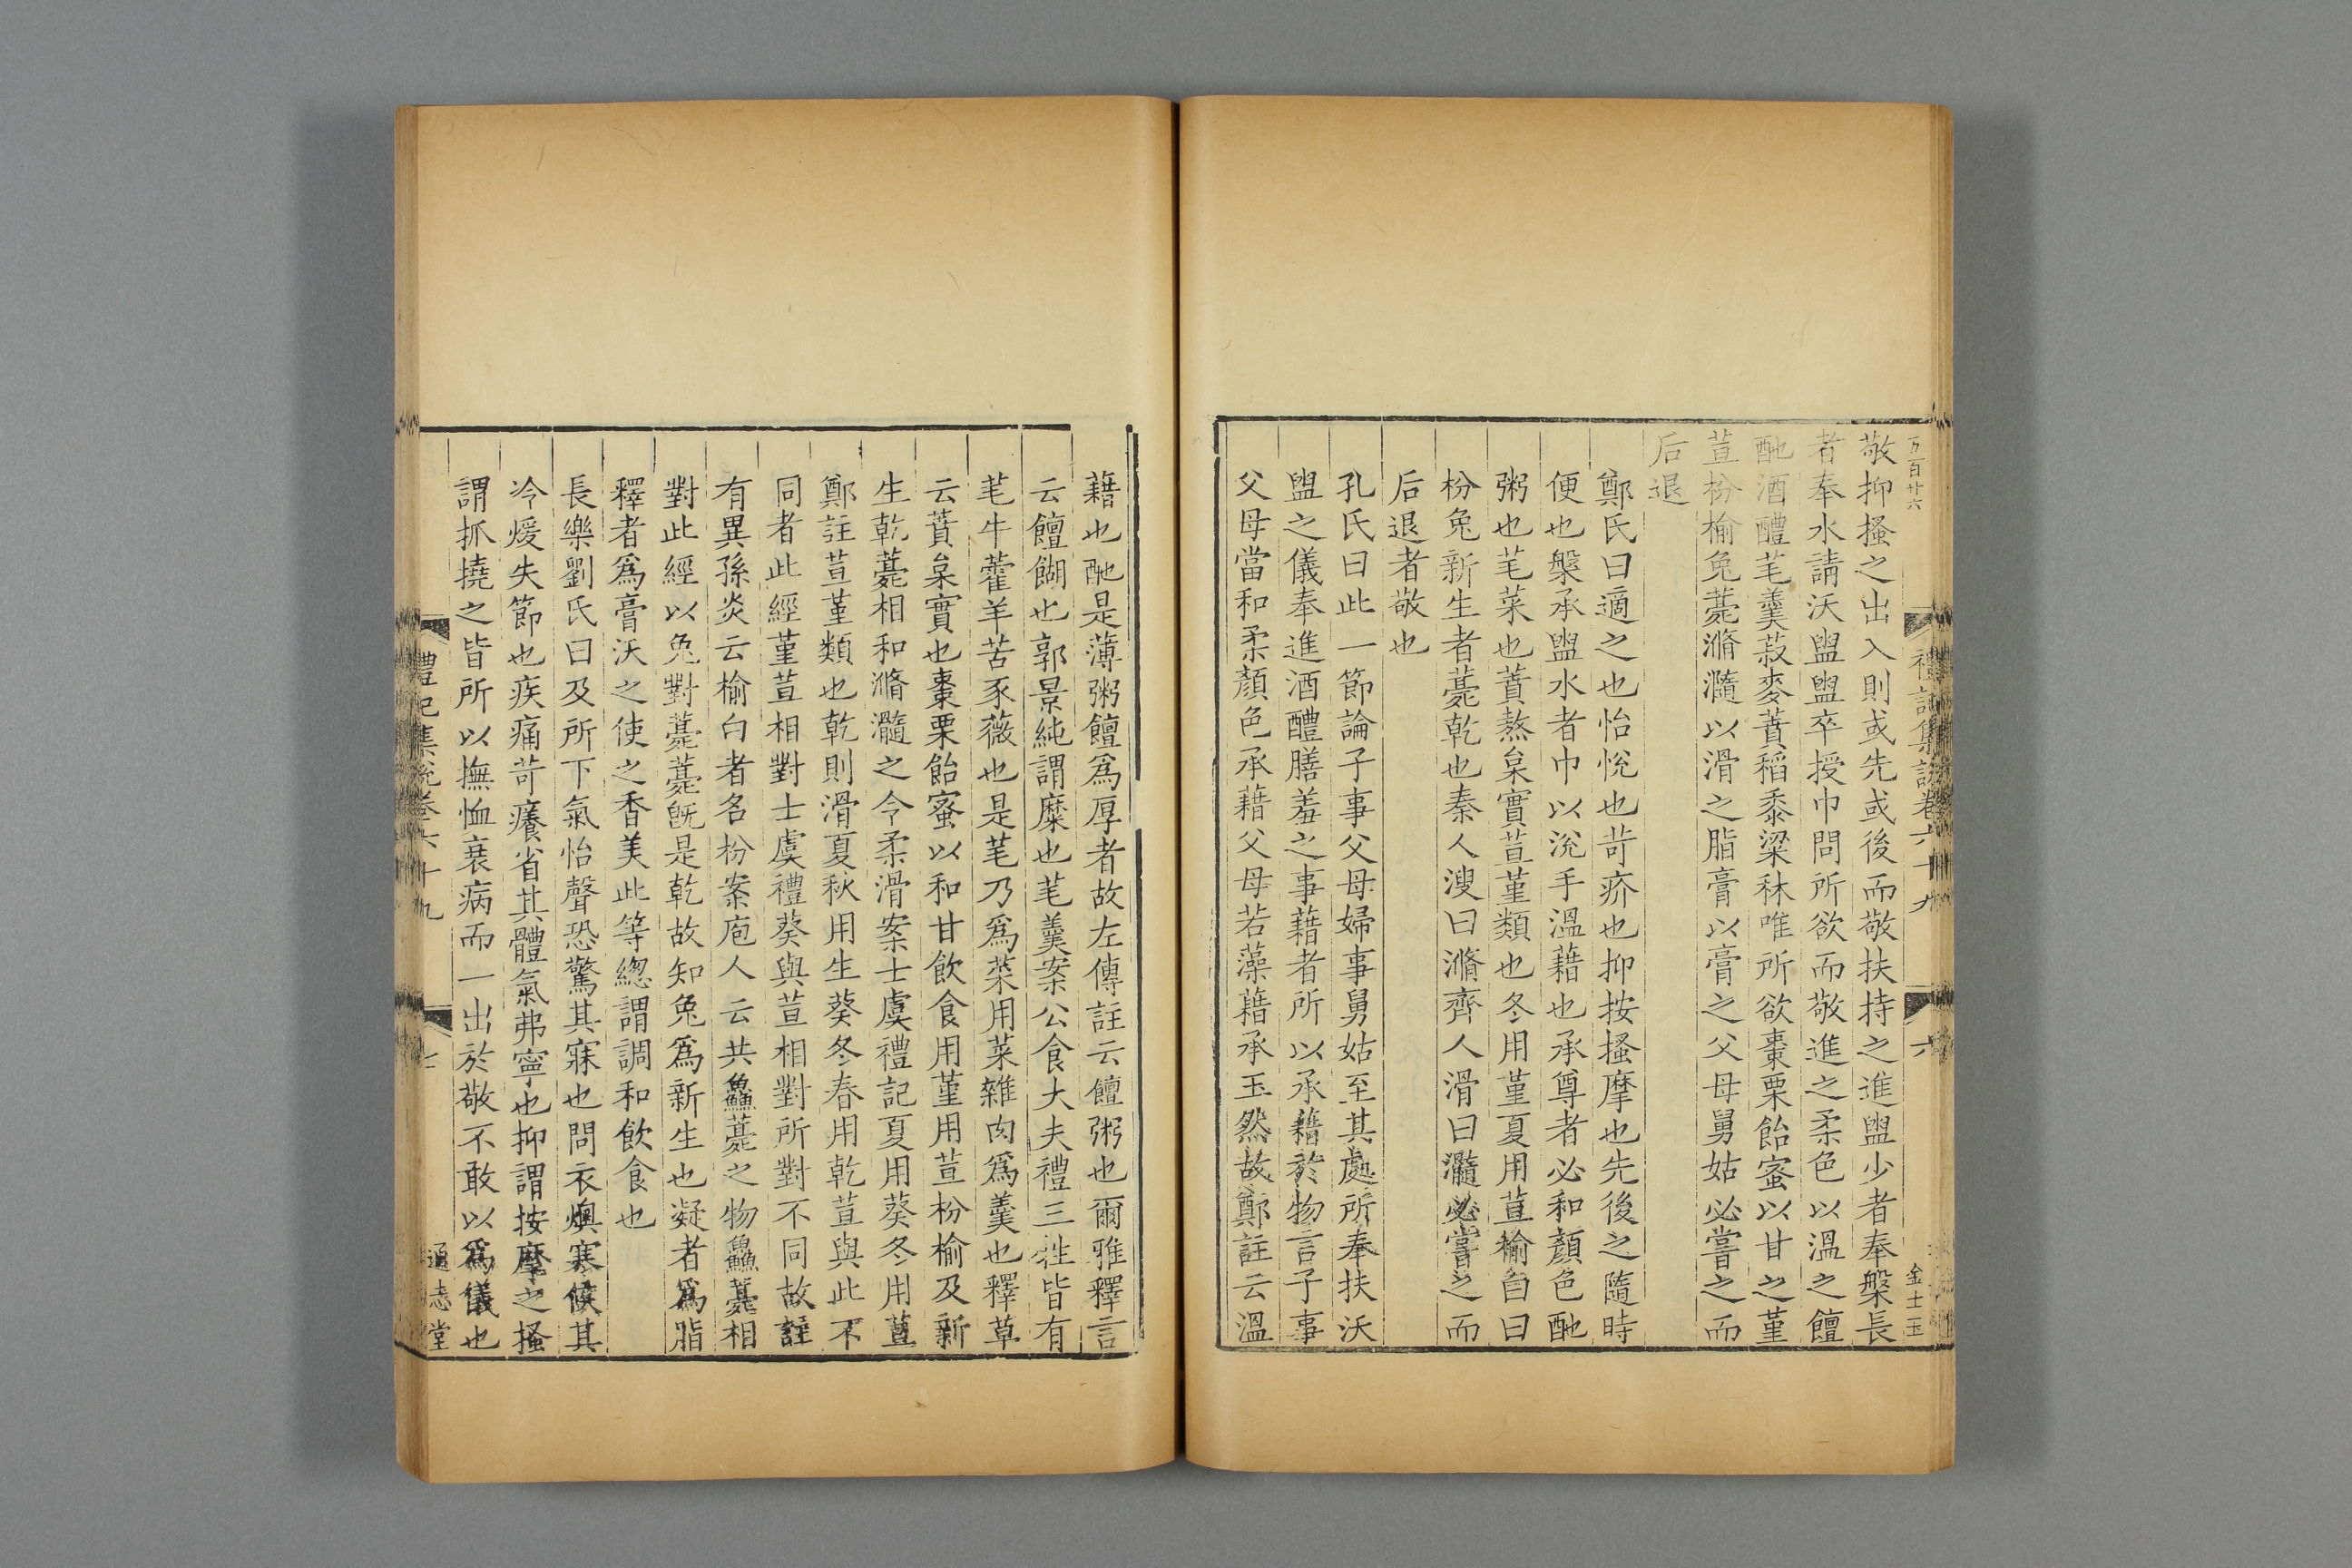 五百廿六
禮記集說卷六十九
六
金士玉
敬抑搔之出入則或先或後而敬扶持之進盥少者奉槃長
者奉水請沃盥盥卒授巾問所欲而敬進之柔色以溫之饘
酏酒醴芼羹菽麥蕡稻黍粱秫唯所欲棗栗飴蜜以甘之堇
荁枌榆免薧滫瀡以滑之脂膏以膏之父母舅姑必嘗之而
后退
鄭氏曰適之也怡悅也苛疥也抑按搔摩也先後之隨時
便也槃承盥水者巾以涗手溫藉也承尊者必和顏色酏
粥也芼菜也蕡熬枲實荁堇類也冬用堇夏用荁榆白曰
枌免新生者薧乾也秦人溲曰滫齊人滑曰瀡必嘗之而
后退者敬也
孔氏曰此一節論子事父母婦事舅姑至其處所奉扶沃
盥之儀奉進酒醴膳羞之事藉者所以承藉於物言子事
父母當和柔顏色承藉父母若藻藉承玉然故鄭註云溫
藉也酏是薄粥饘爲厚者故左傳註云饘粥也爾雅釋言
云饘餬也郭景純謂糜也芼羹案公食大夫禮三牲皆有
芼牛藿羊苦豕薇也是芼乃爲菜用菜雜肉爲羹也釋草
云蕡枲實也棗栗飴蜜以和甘飲食用堇用荁枌榆及新
生乾薧相和滫瀡之令柔滑案士虞禮記夏用葵冬用荁
鄭註荁堇類也乾則滑夏秋用生葵冬春用乾荁與此不
同者此經堇荁相對士虞禮葵與荁相對所對不同故註
有異孫炎云榆白者名枌案庖人云共鱻薧之物鱻薧相
對此經以免對薧薧旣是乾故知免爲新生也凝者爲脂
釋者爲膏沃之使之香美此等緫謂調和飲食也
長樂劉氏曰及所下氣怡聲恐驚其寐也問衣燠寒候其
冷煖失節也疾痛苛癢省其體氣弗寧也抑謂按摩之搔
謂抓撓之皆所以撫恤衰病而一出於敬不敢以爲儀也
禮記集說卷六十九
七
通志堂